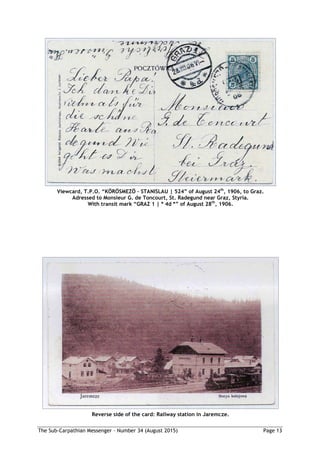 POCZTÓW
GRAZ 1
Lieber Papa!
Ich danke Dir
vielmals für
die schöne
Karte aus Ra
degund Wie
geht es Dir
Was machst
Monsieur
G. de Toncourt
St. Radegund
bei Graz.
Steiermark.
Viewcard, T.P.O. “KÖRÖSMEZŐ – STANISLAU | 524” of August 24th, 1906, to Graz.
Adressed to Monsieur G. de Toncourt, St. Radegund near Graz, Styria.
With transit mark “GRAZ 1 | * 4d *” of August 28th, 1906.
Jaremcze
Stacya kolejowa
Reverse side of the card: Railway station in Jaremcze.
The Sub-Carpathian Messenger – Number 34 (August 2015) Page 13